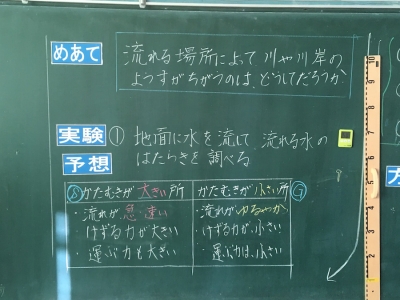 めあて
流れる場所によって、川や川岸の
ようすがちがうのは、どうしてだろうか。
実験
① 地面に水を流して、流れる水の
はたらきを調べる
予想
かたむきが大きい所
・流れが急、速い
・けずる力が大きい
・運ぶ力も大きい
かたむきが小さい所
・流れがゆるやか
・けずる力が小さい
・運ぶ力は、小さい